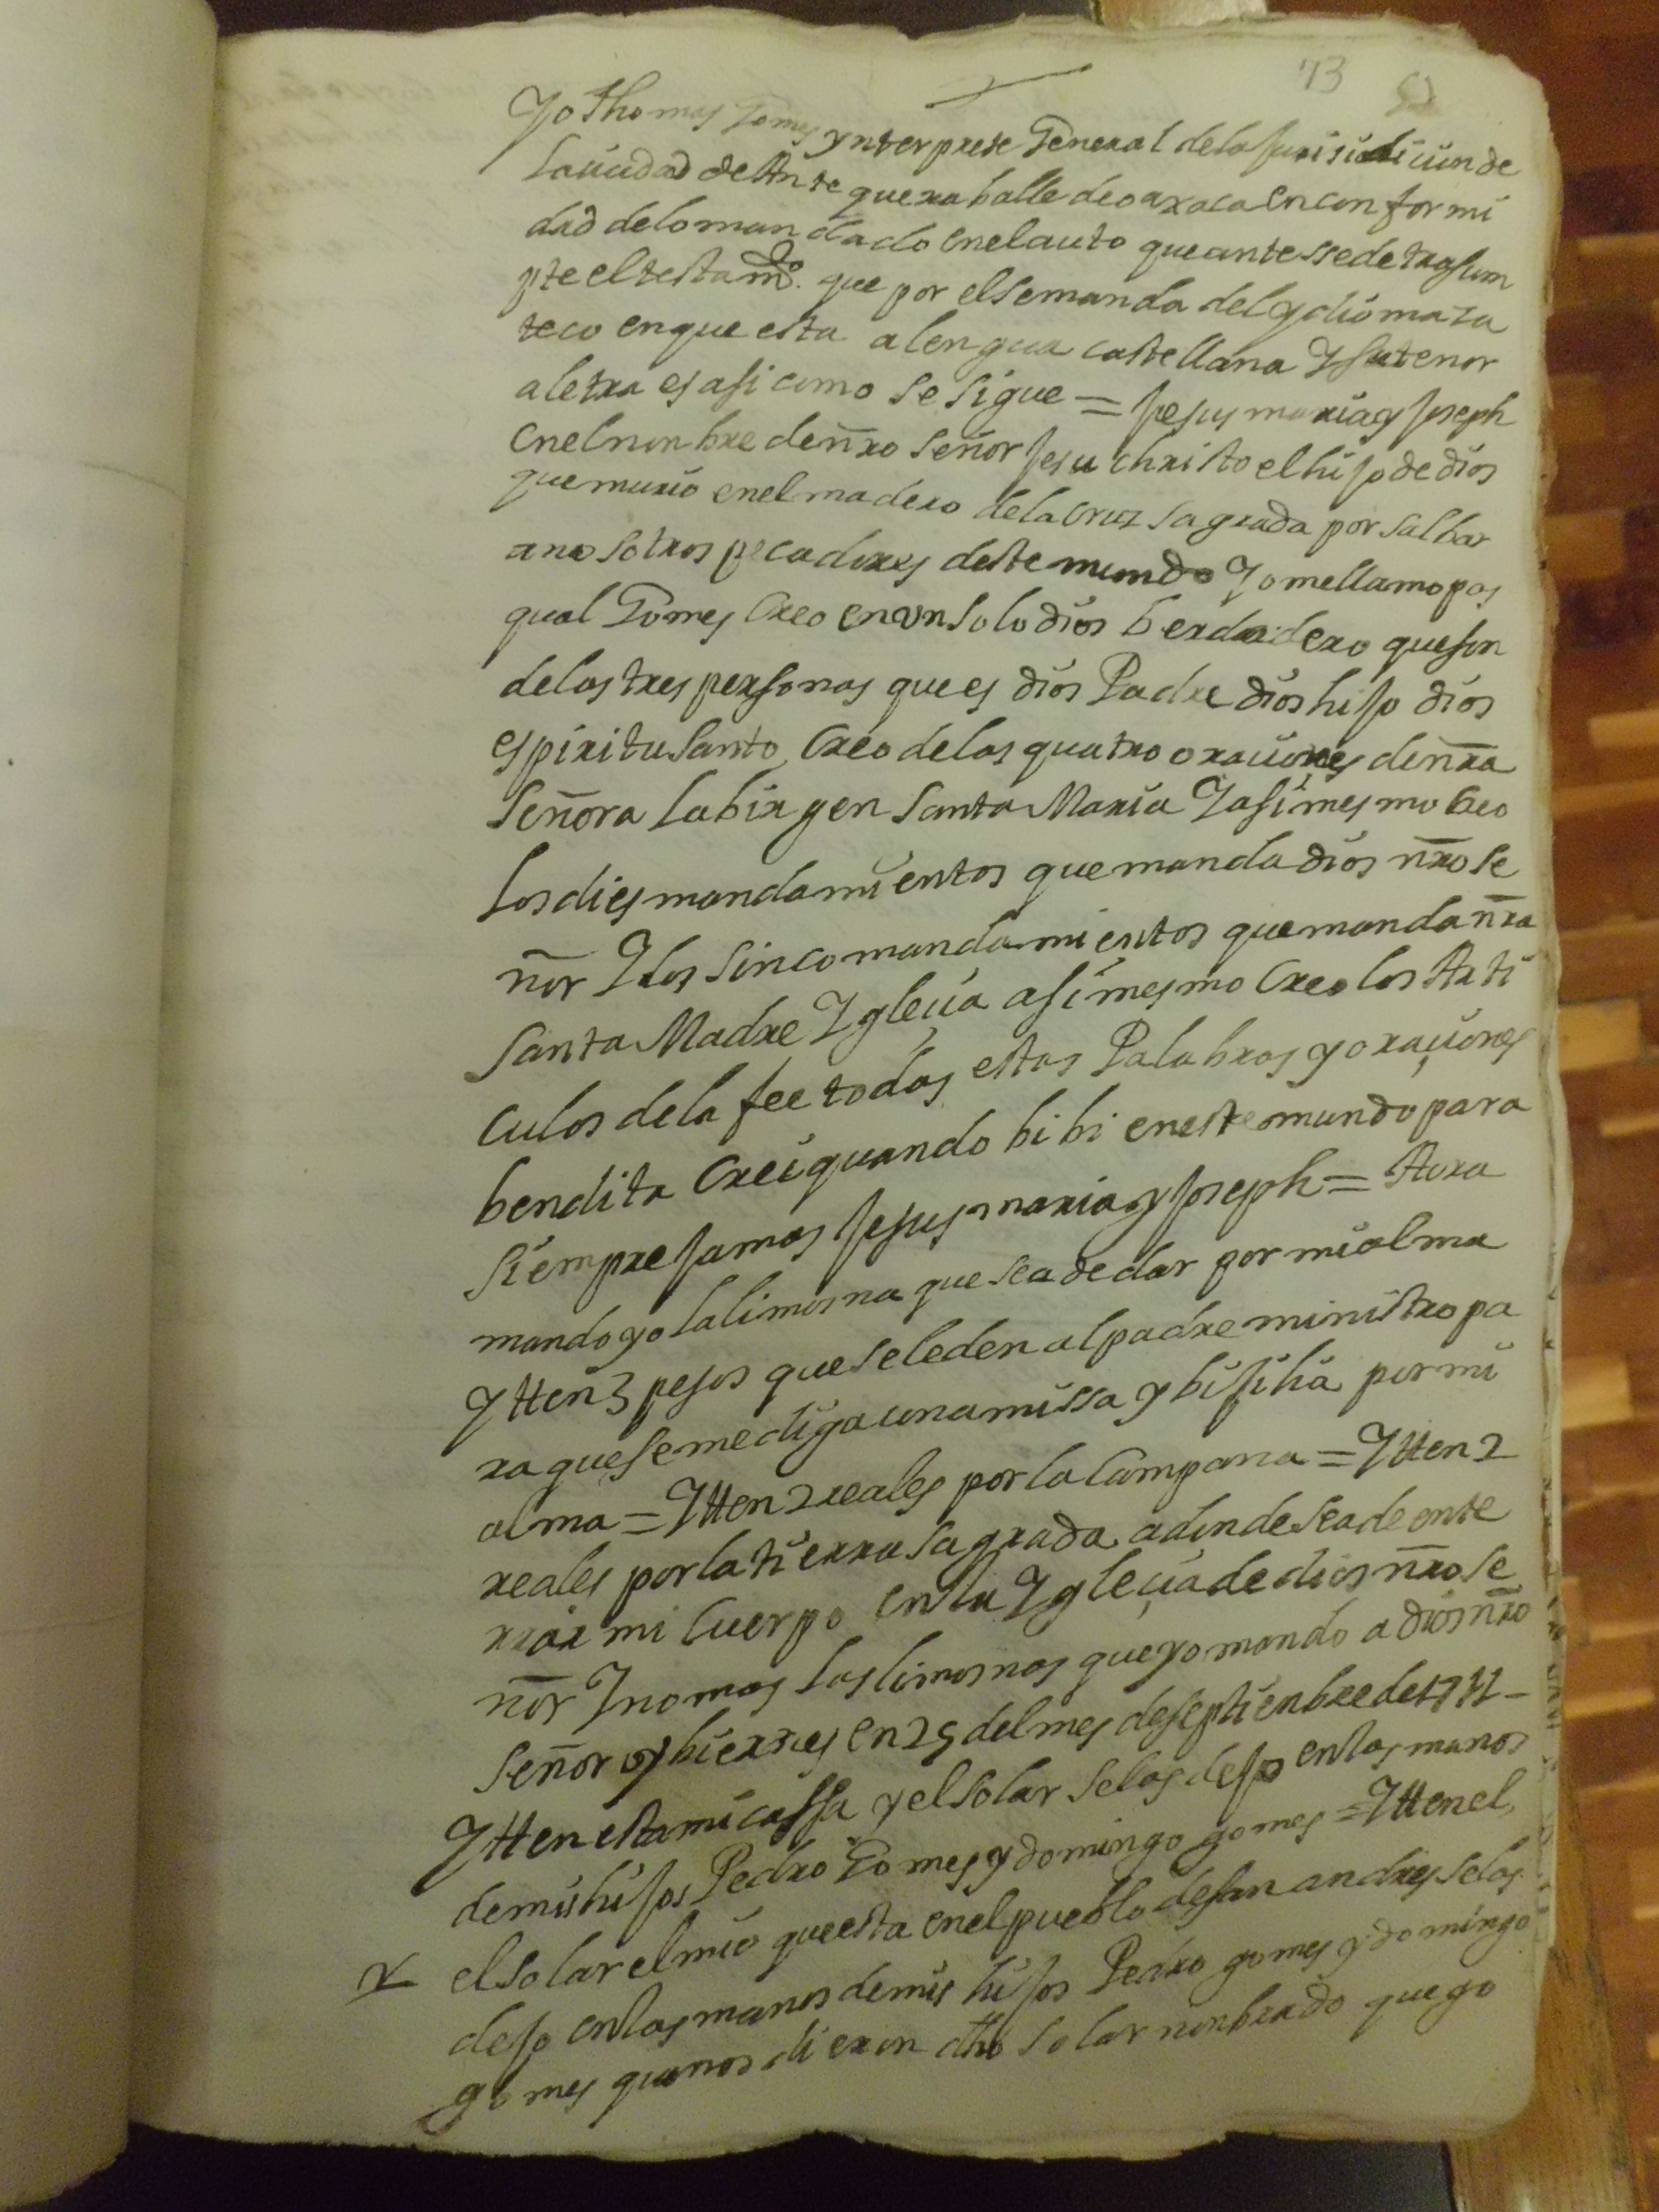 73
Yo thomas Gomes ynterprete General de la Jurisidicion de
la ciudad de Antequera balle de oaxaca en conformi
dad de lo mandado en el auto que antessede trasum
pte el testamto. que por el se manda del ydioma za
teco en que esta a lengua castellana Y su tenor
a letra es asi como se sigue = Jesus maria y Joseph
en el nonbre de ñro Señor Jesu christo el hijo de dios
que murio en el madero de la cruz sagrada por salbar
a nosotros pecadores deste mundo Yo me llamo pas
qual Gomes Creo en un solo dios berdadero que son
de las tres personas que es dios Padre dios hijo dios
espiritu Santo Creo de las quatro oraciones de ñra
Señora la birgen Santa Maria Y asi mesmo Creo
los dies mandamientos que manda dios ñro se
ñor Y los sinco mandamientos que manda ñra
Santa Madre Ygleçia asi mesmo Creo los Arti
culos de la fee todas estas Palabras y oraçiones
bendita Crei quando bibi en este mundo para
siempre Jamas Jesus maria y Joseph = Aora
mando yo la limosna que sea de dar por mi alma
Ytten 3 pesos que se le den al padre ministro pa
ra que se me diga una missa y bijilia por mi
alma = Ytten 2 reales por la Campana = Ytten 2
reales por la tierra sagrada adonde sea de ente
rrar mi Cuerpo en la Ygleçia de dios ñro se
ñor Y no mas las limosnas que yo mando a dios ñro
Señor oy biernes en 25 del mes de septienbre de
Ytten esta mi cassa y el solar se las dejo en las manos
de mis hijos Pedro Gomes y domingo gomes = Ytten el
el solar el mio que esta en el pueblo de san andres se las
dejo en las manos de mis hijos Pedro gomes y domingo
gomes quanos dieron dho solar nonbrado quego